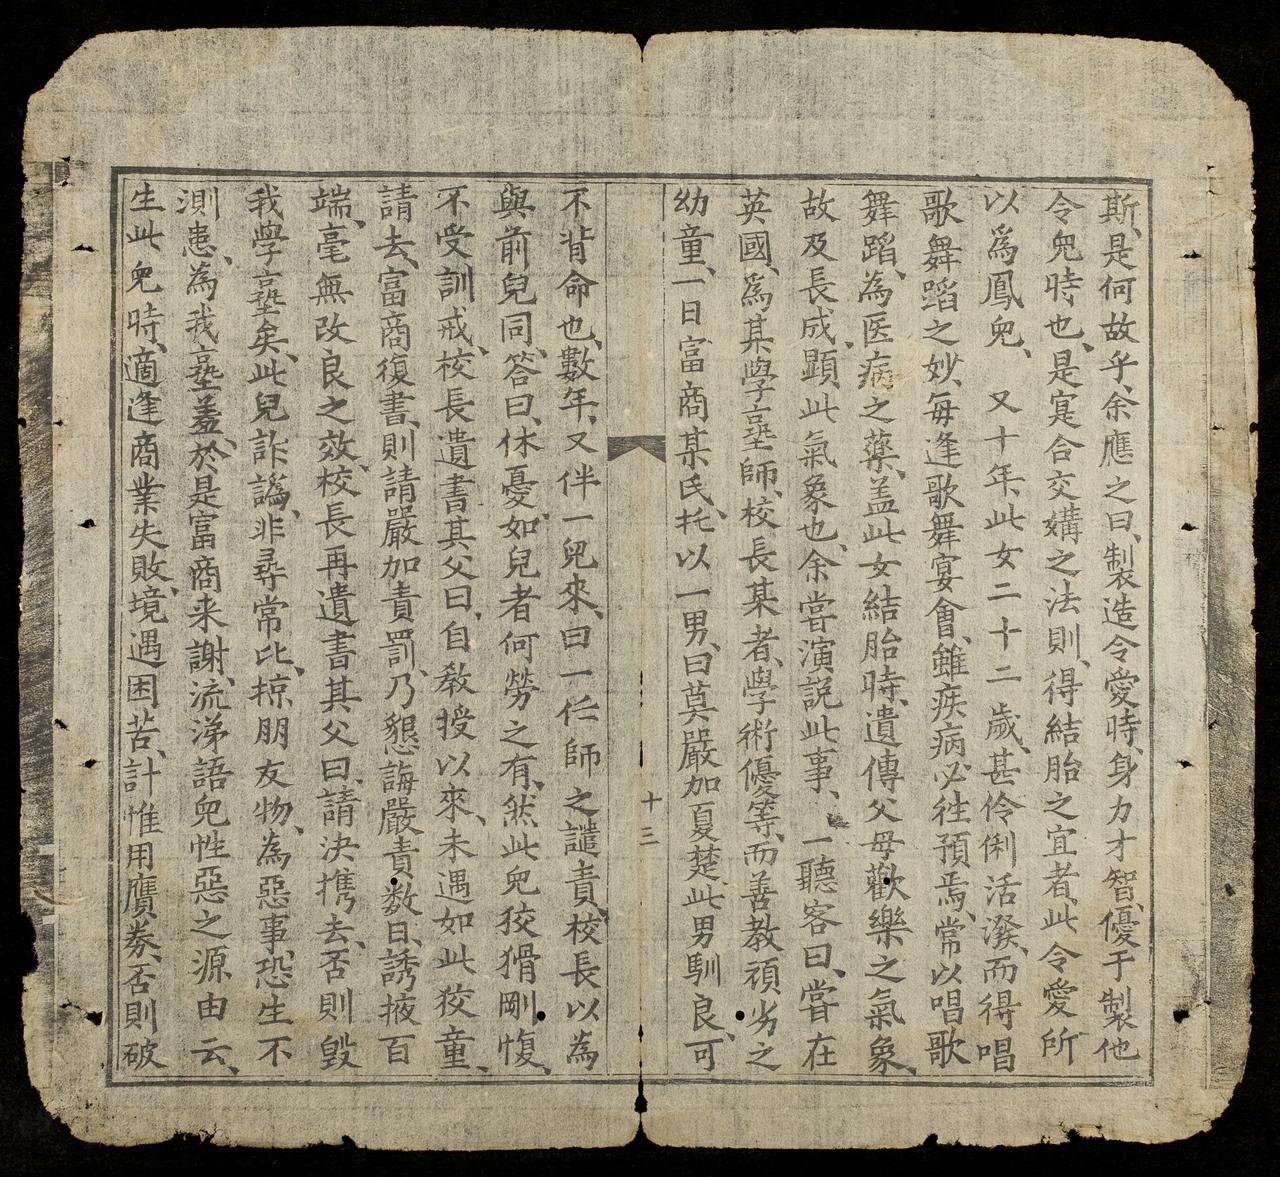 斯、是何故乎、余應之曰、製造令愛時、身力才智、優于製他
令兒時也、是寔合交媾之法則、得結胎之宜者、此令愛所
以為鳳兒、 又十年、此女二十二歲、甚伶俐活潑、而得唱
歌舞蹈之妙、每逢歌舞宴會、雖疾病必往預焉、常以唱歌
舞蹈、為医病之藥、盖此女結胎時、遺傳父母歡樂之氣象、
故及長成、顕此氣象也、余嘗演説此事、一聽客曰、嘗在
英國、爲某學臺師、校長某者、學術優等、而善教頑劣之
幼童、一日富商某氏、托以一男、曰莫嚴加夏楚、此男馴良、可
十三
不背命也、數年、又伴一兒來、曰一任師之譴責、校長以為
與前兒同、答曰、休憂、如兒者何勞之有、然此兒狡猾剛愎、
不受訓戒、校長遺書其父曰、自教授以來、未遇如此狡童、
請去、富商復書、則請嚴加責罰、乃懇誨嚴責数日、誘掖百
端、毫無改良之效、校長再遺書其父曰、請決携去、否則毀
我學臺矣、此兒詐譌、非尋常比、掠朋友物、為惡事、恐生不
測患、為我臺羞、於是富商来謝、流涕語兒性惡之源由云、
生此兒時、適逢商業失敗、境遇困苦、計惟用贋劵、否則破